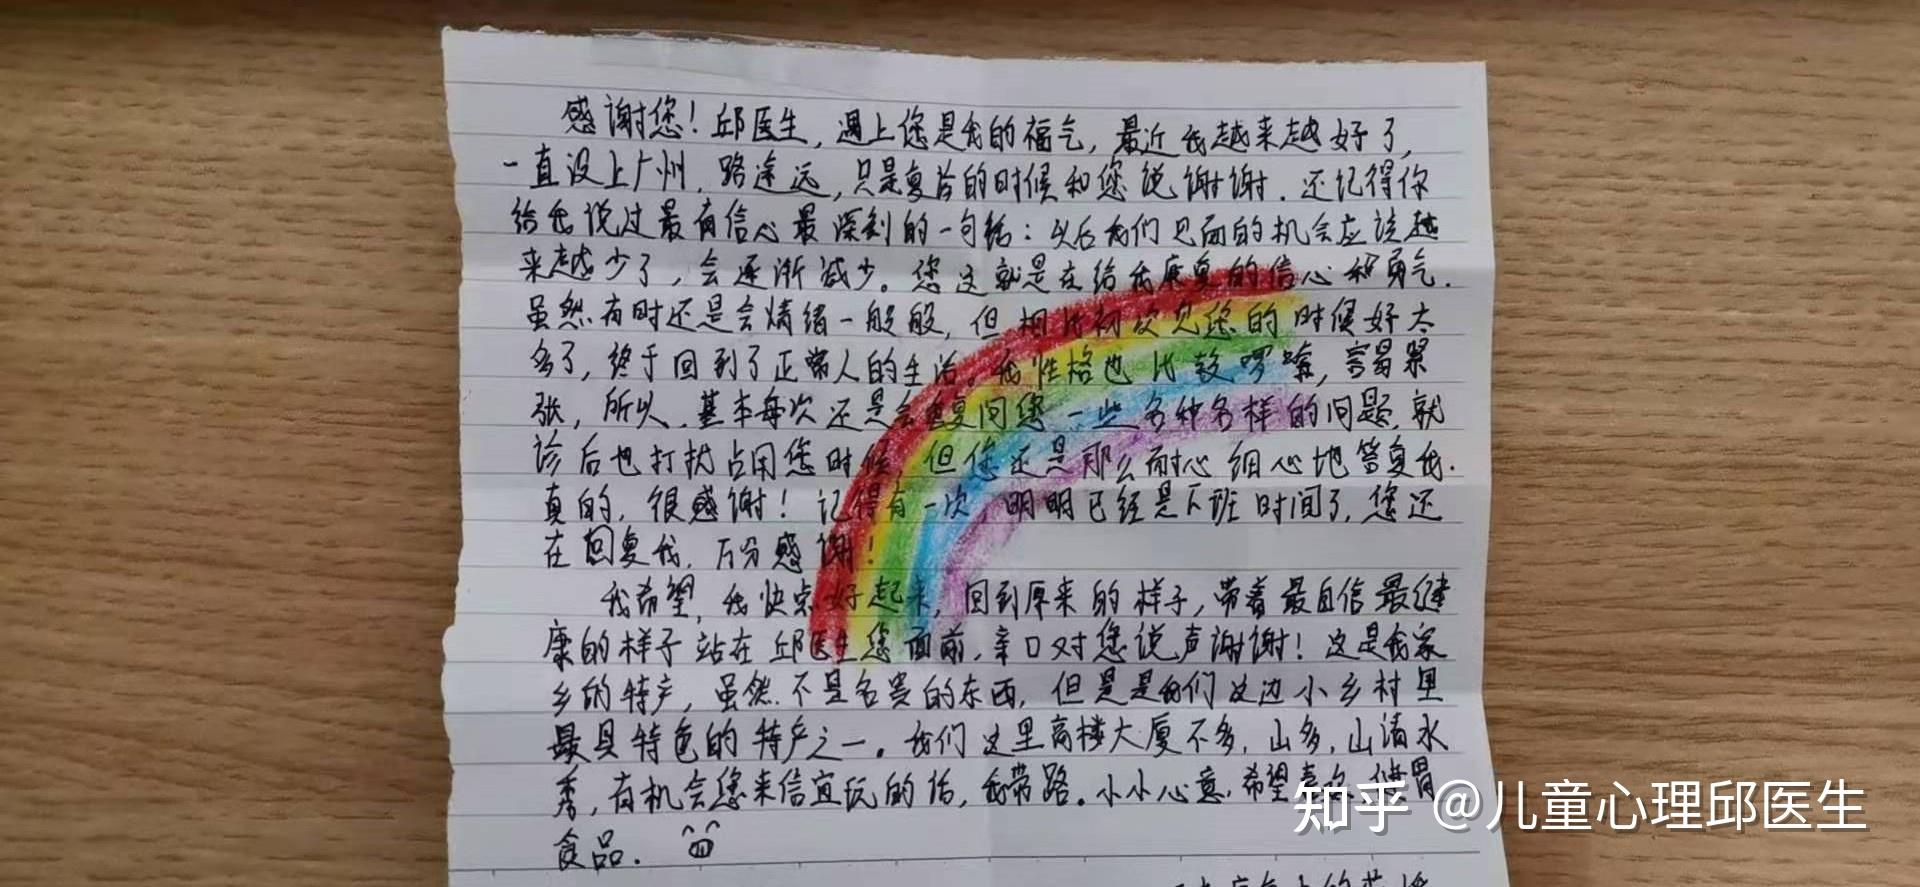 感谢您！邱医生，遇上您是我的福气，最近我越来越好了，
一直没上广州，路途远，只是复诊的时候和您说谢谢．还记得你
给我说过最有信心最深刻的一句话：以后我们见面的机会应该越
来越少了，会逐渐减少。您这就是在给我康复的信心和勇气．
虽然有时还是会情绪一般般，但相比初次见您的时候好太
多了，终于回到了正常人的生活。我性格也比较啰嗦，容易紧
张，所以，基本每次还是会重复问您一些各种各样的问题，就
诊后也打扰占用您时候，但您还是那么耐心细心地答复我．
真的，很感谢！记得有一次，明明已经是下班时间了，您还
在回复我，万分感谢！
我希望，我快点好起来，回到原来的样子，带着最自信最健
康的样子站在邱医生您面前，亲口对您说声谢谢！这是我家
乡的特产，虽然不是名贵的东西，但是是我们这边小乡村里
最具特色的特产之一。我们这里高楼大厦不多，山多，山清水
秀，有机会您来信宜玩的话，我带路。小小心意，希望喜欢，健胃
食品．
知乎 @儿童心理邱医生